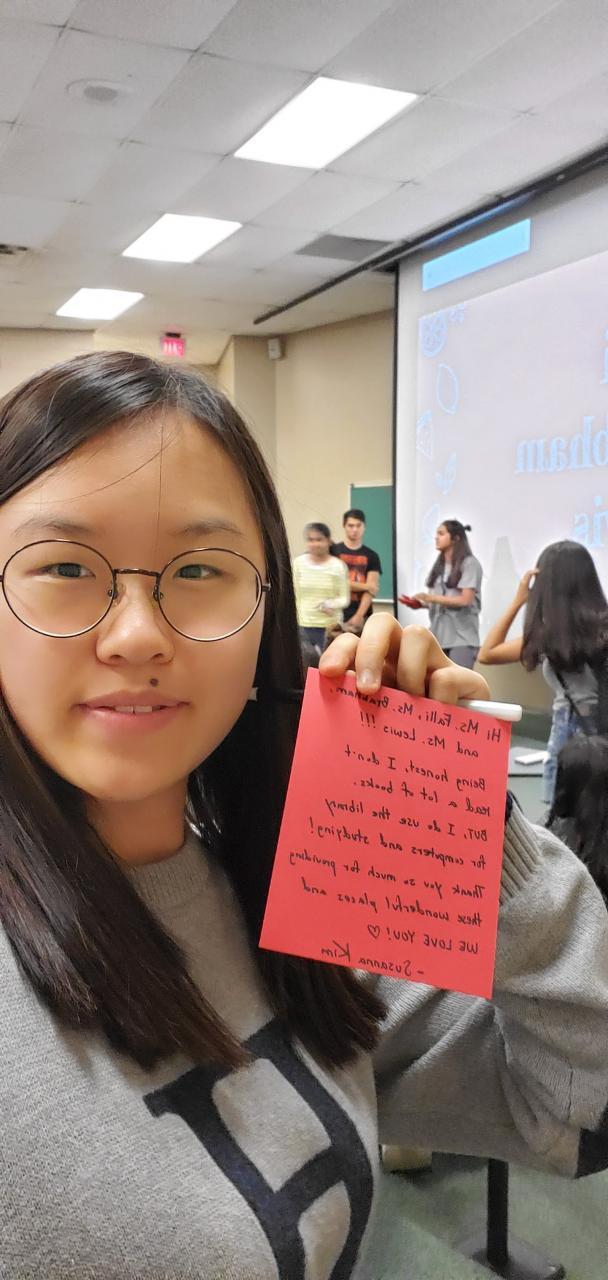 Hi Ms. Falli, Ms. Brabham,
and Ms. Lewis !!!
Being honest, I don't
read a lot of books.
BUT, I do use the library
for computers and studying!
Thank you so much for providing
these wonderful places and
WE LOVE YOU! ♡
- Susanna Kim
bham
is
H